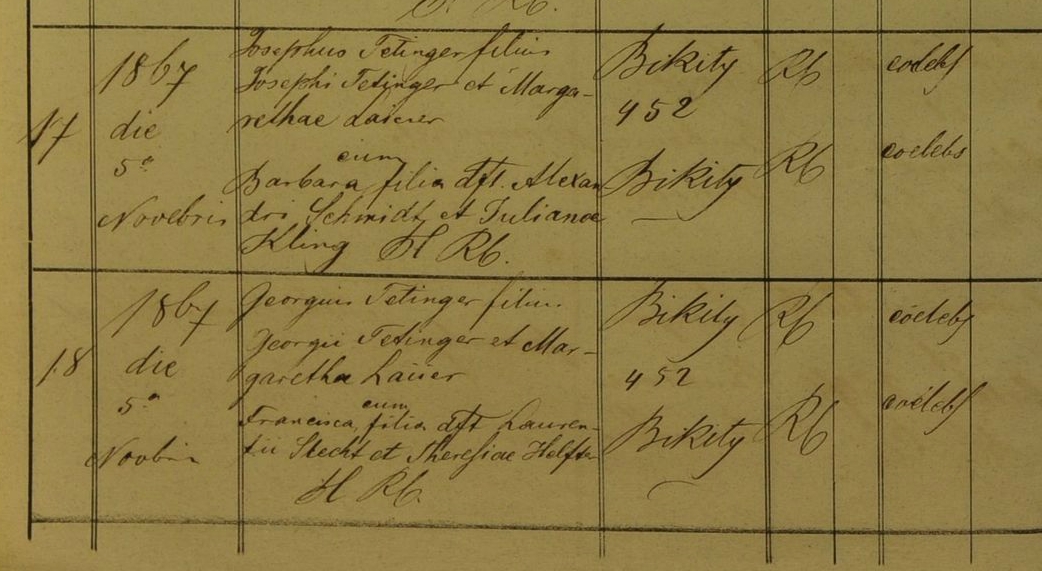 H Rb.
1867
17 die
5ª
Novebris
Josephus Tetinger filius
Josephi Tetinger et Marga-
rethae Laicser
cum
Barbara filia dft. Alexan
dri Schmidt, et Julianae
Kling H Rb.
Bikity
452
Bikity
Rb
Rb
coelebs
coelebs
1867
18 die
5ª
Novbris
Georgius Tetinger filius
Georgii Tetinger et Mar-
garetha
cum
Francisca, filia dft Lauren-
tii Stecht et Theresiae Helfter
H Rb.
Bikity
452
Bikity
Rb
Rb
coelebs
coelebs